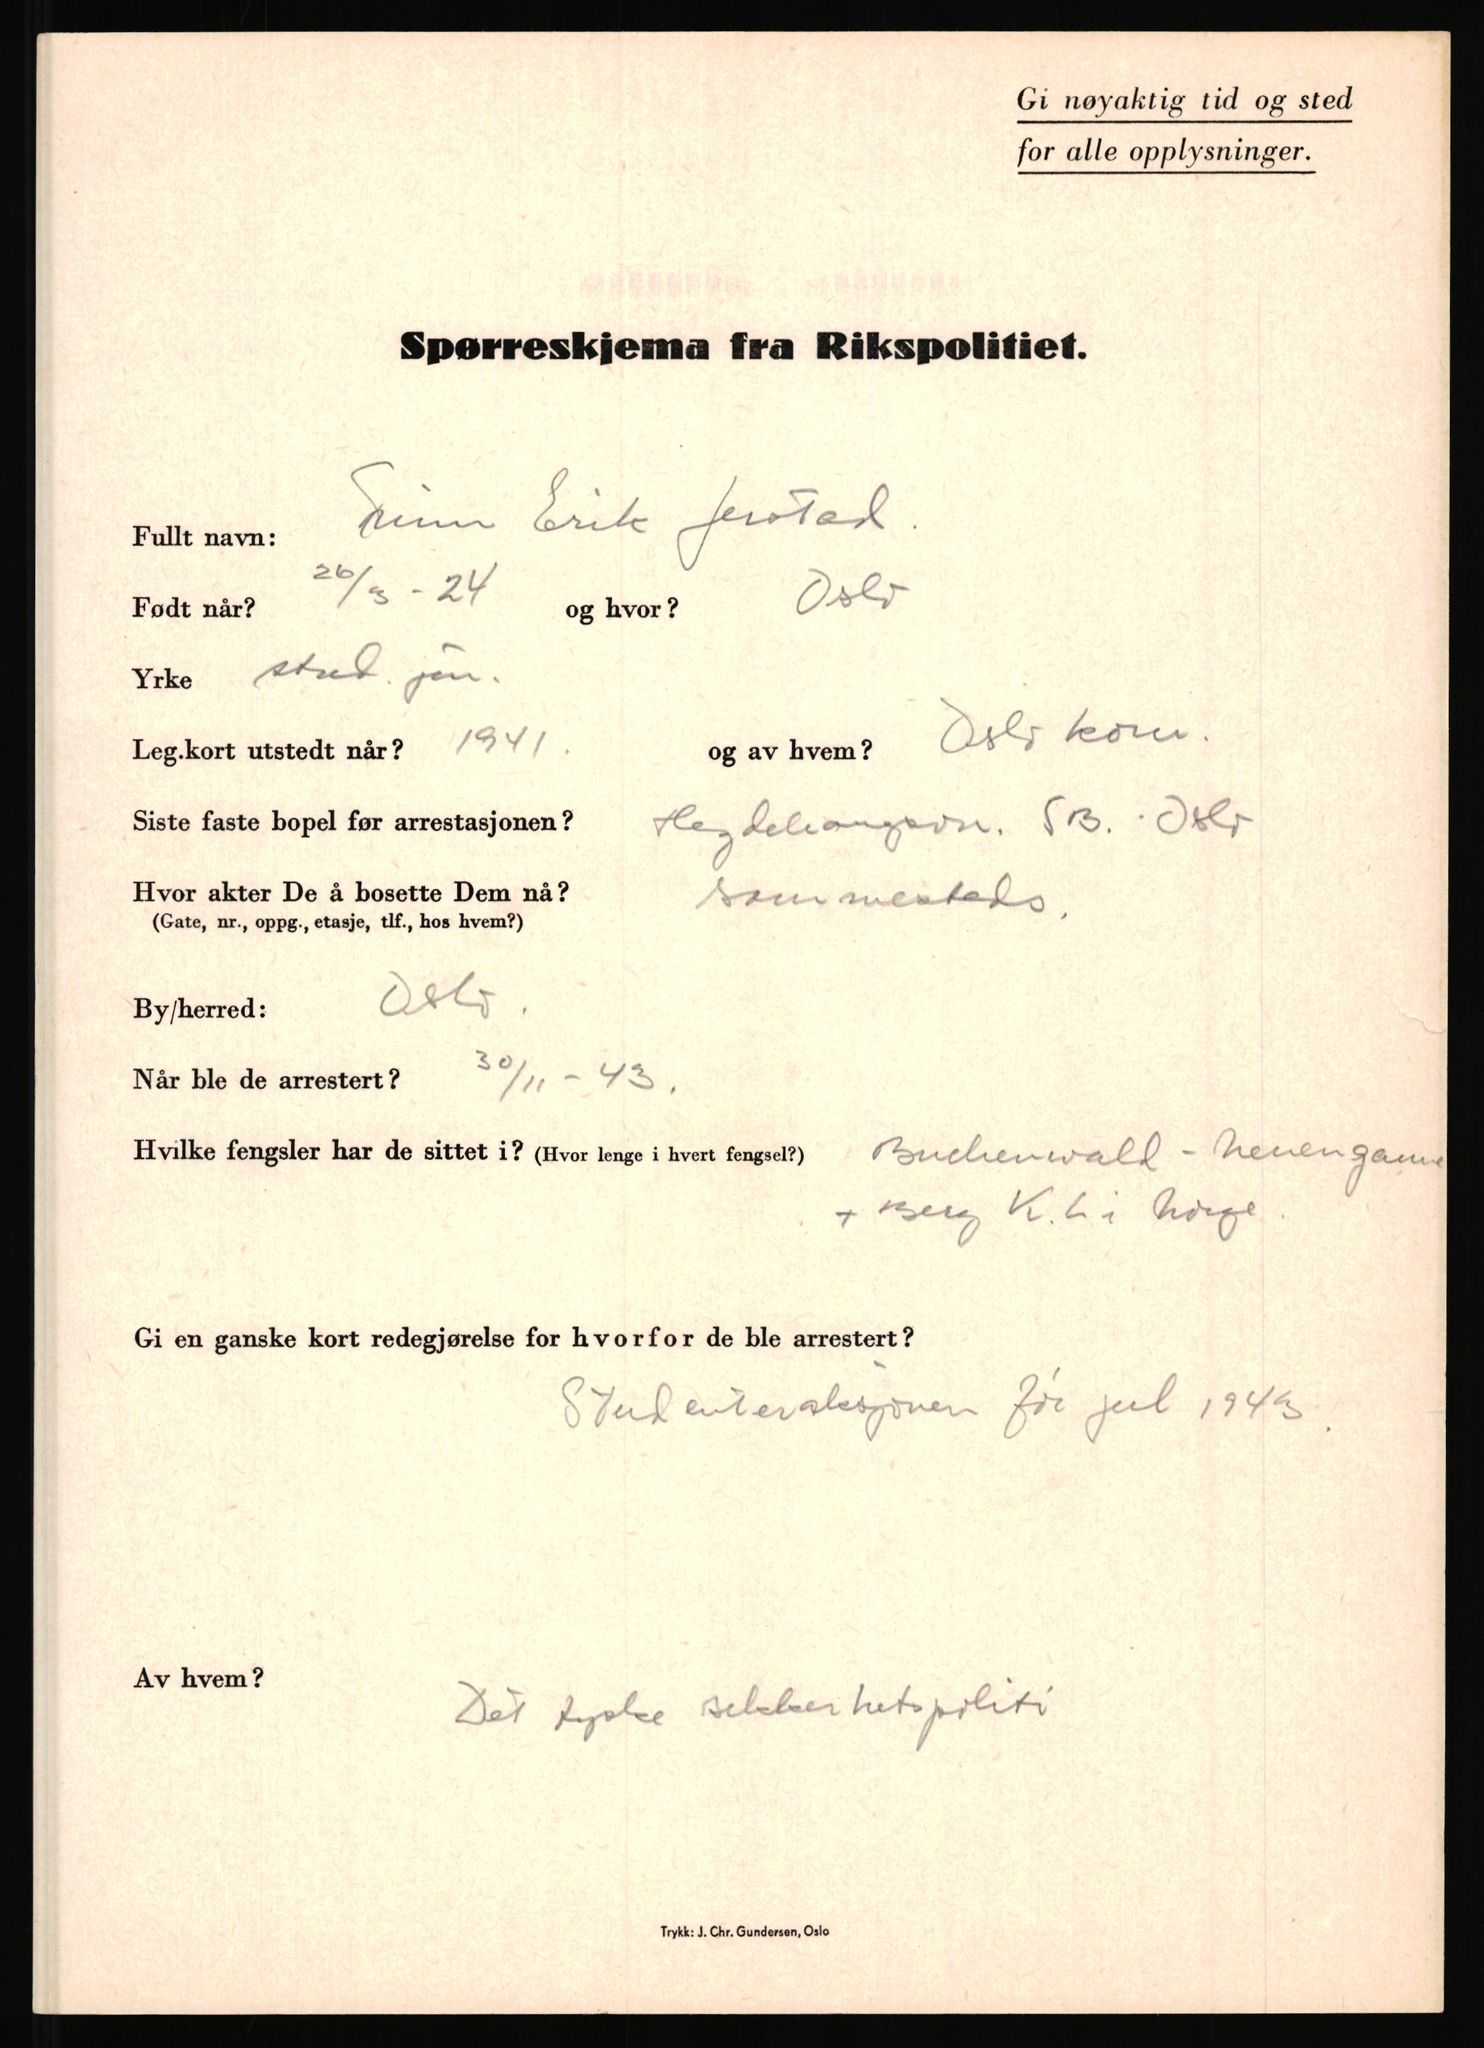 Gi nøyaktig tid og sted
for alle opplysninger.
Spørreskjema fra Rikspolitiet.
Fullt navn: Finn Erik Jerstad.
Født når? 26/3 - 24 og hvor? Oslo
Yrke stud. jur.
Leg.kort utstedt når? 1941. og av hvem? Oslo kom.
Siste faste bopel før arrestasjonen? Hegdehaugsvn. 5B. Oslo
Hvor akter De å bosette Dem nå? sammesteds.
(Gate, nr., oppg., etasje, tlf., hos hvem?)
By/herred: Oslo.
Når ble de arrestert? 30/11 - 43.
Hvilke fengsler har de sittet i? (Hvor lenge i hvert fengsel?) Buchenwald - Neuengamme
+ Berg K.L i Norge.
Gi en ganske kort redegjørelse for hvorfor de ble arrestert?
Studenteraksjonen før jul 1943.
Av hvem?
Det tyske sikkerhetspoliti
Trykk: J. Chr. Gundersen, Oslo